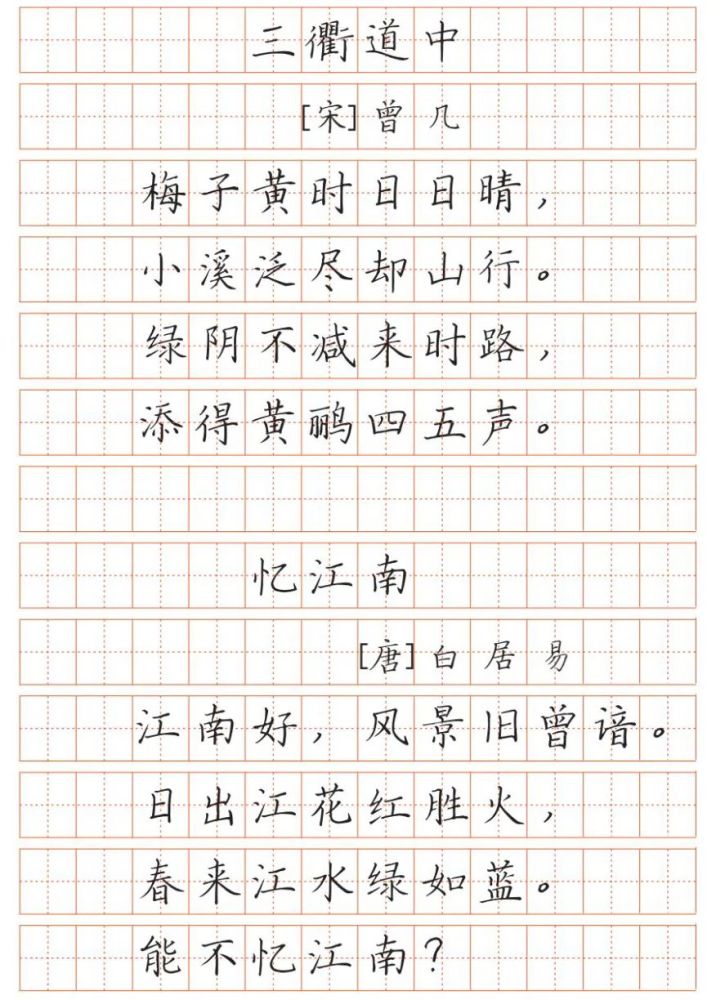 三衢道中
[宋]曾几
梅子黄时日日晴，
小溪泛尽却山行。
绿阴不减来时路，
添得黄鹂四五声。
忆江南
[唐]白居易
江南好，风景旧曾谙。
日出江花红胜火，
春来江水绿如蓝。
能不忆江南？